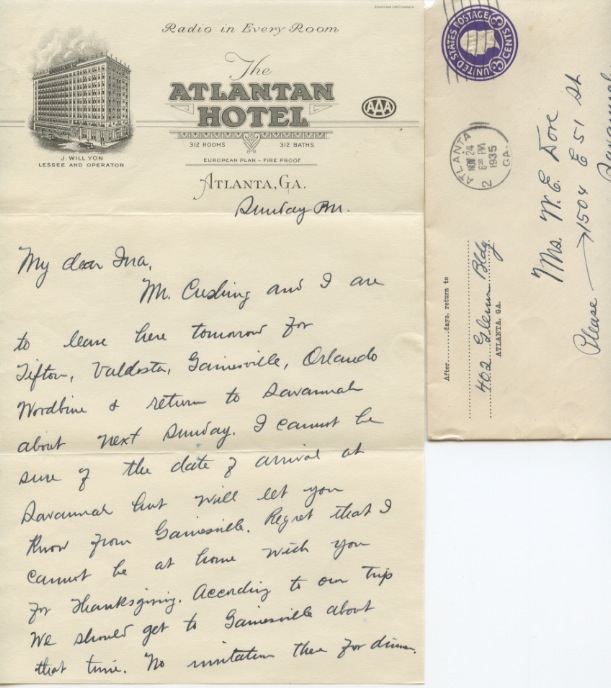 Radio in Every Room
The
ATLANTAN
HOTEL
AAA
312 ROOMS 312 BATHS
EUROPEAN PLAN - FIRE PROOF
J. WILL YON
LESSEE AND OPERATOR
ATLANTA, GA.
Sunday PM.
My dear Ina,
Mr. Cushing and I are
to leave here tomorrow for
Tifton, Valdosta, Gainesville, Orlando
Woodbine & return to Savannah
about next Sunday. I cannot be
sure of the date of arrival at
Savannah but will let you
know from Gainesville. Regret that I
cannot be at home with you
for Thanksgiving. According to our trip
we should get to Gainesville about
that time. No invitation there for dinner.
UNITED STATES POSTAGE
3 CENTS 3
ATLANTA
NOV 24
6 30 PM
1935
GA.
2
Mrs. W. E. Dore
Please → 1504 E 51 St
Savannah
After ........ days, return to
402 Glenn Bldg
ATLANTA, GA.